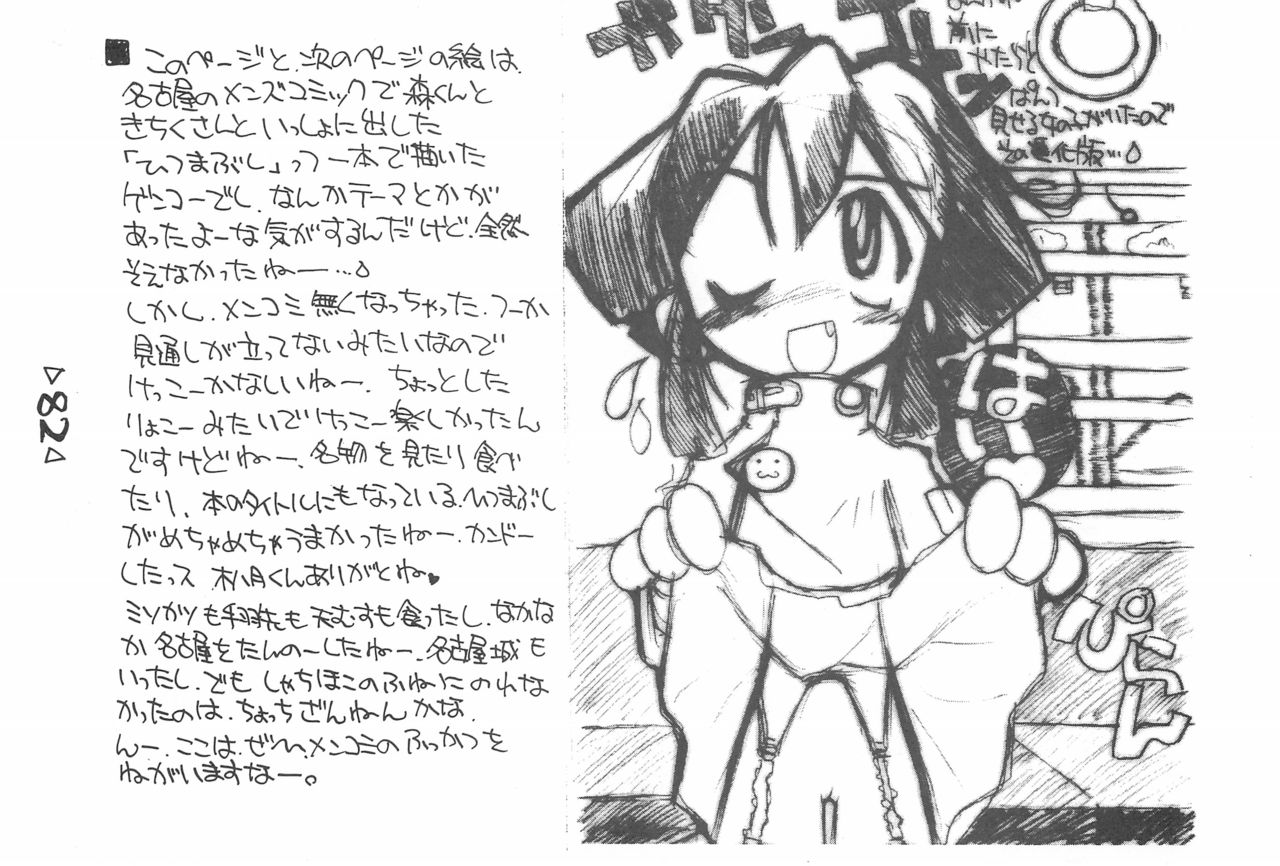 ■このページと、次のページの絵は、
名古屋のメンズコミックで森くんと
きちくさんといっしょに出した
「ひつまぶし」って一本で描いた
ゲンコーでし、なんかテーマとかが
あったよーな気がするんだけど、全然
そえなかったねー…
しかし、メンコミ無くなっちゃった、つーか
見通しが立ってないみたいなので
けっこーかなしいねー、ちょっとした
りょこーみたいでけっこー楽しかったん
ですけどねー、名物を見たり食べ
たり、本のタイトルにもなっている、ひつまぶし
がめちゃめちゃうまかったねー、カンドー
したっス くんありがとね♥
ミソカツも手羽先も天むすも食ったし、なかな
か名古屋をたんのーしたねー、名古屋城も
いったし、でもしゃちほこのふねにのれな
かったのは、ちょっちざんねんかな、
んー、ここは、ぜひ、メンコミのふっかつを
ねがいますなー。
◁82▷
ガタン
ゴトン
前に
ぱんつ
見せる女の子がいたので
その進化版…
はい
ぴらし